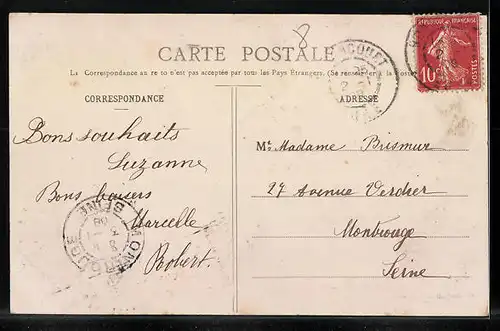 8
CARTE POSTALE
La Correspondance au recto n'est pas acceptée par tous les Pays Étrangers. (Se renseigner à la Poste)
CORRESPONDANCE
ADRESSE
RÉPUBLIQUE FRANÇAISE
10
POSTES
Bons souhaits
Suzanne
Bons baisers
Marcelle
Robert.
MONTROUGE
SEINE
Mt. Madame Prismur
27 Avenue Verdier
Montrouge
Seine